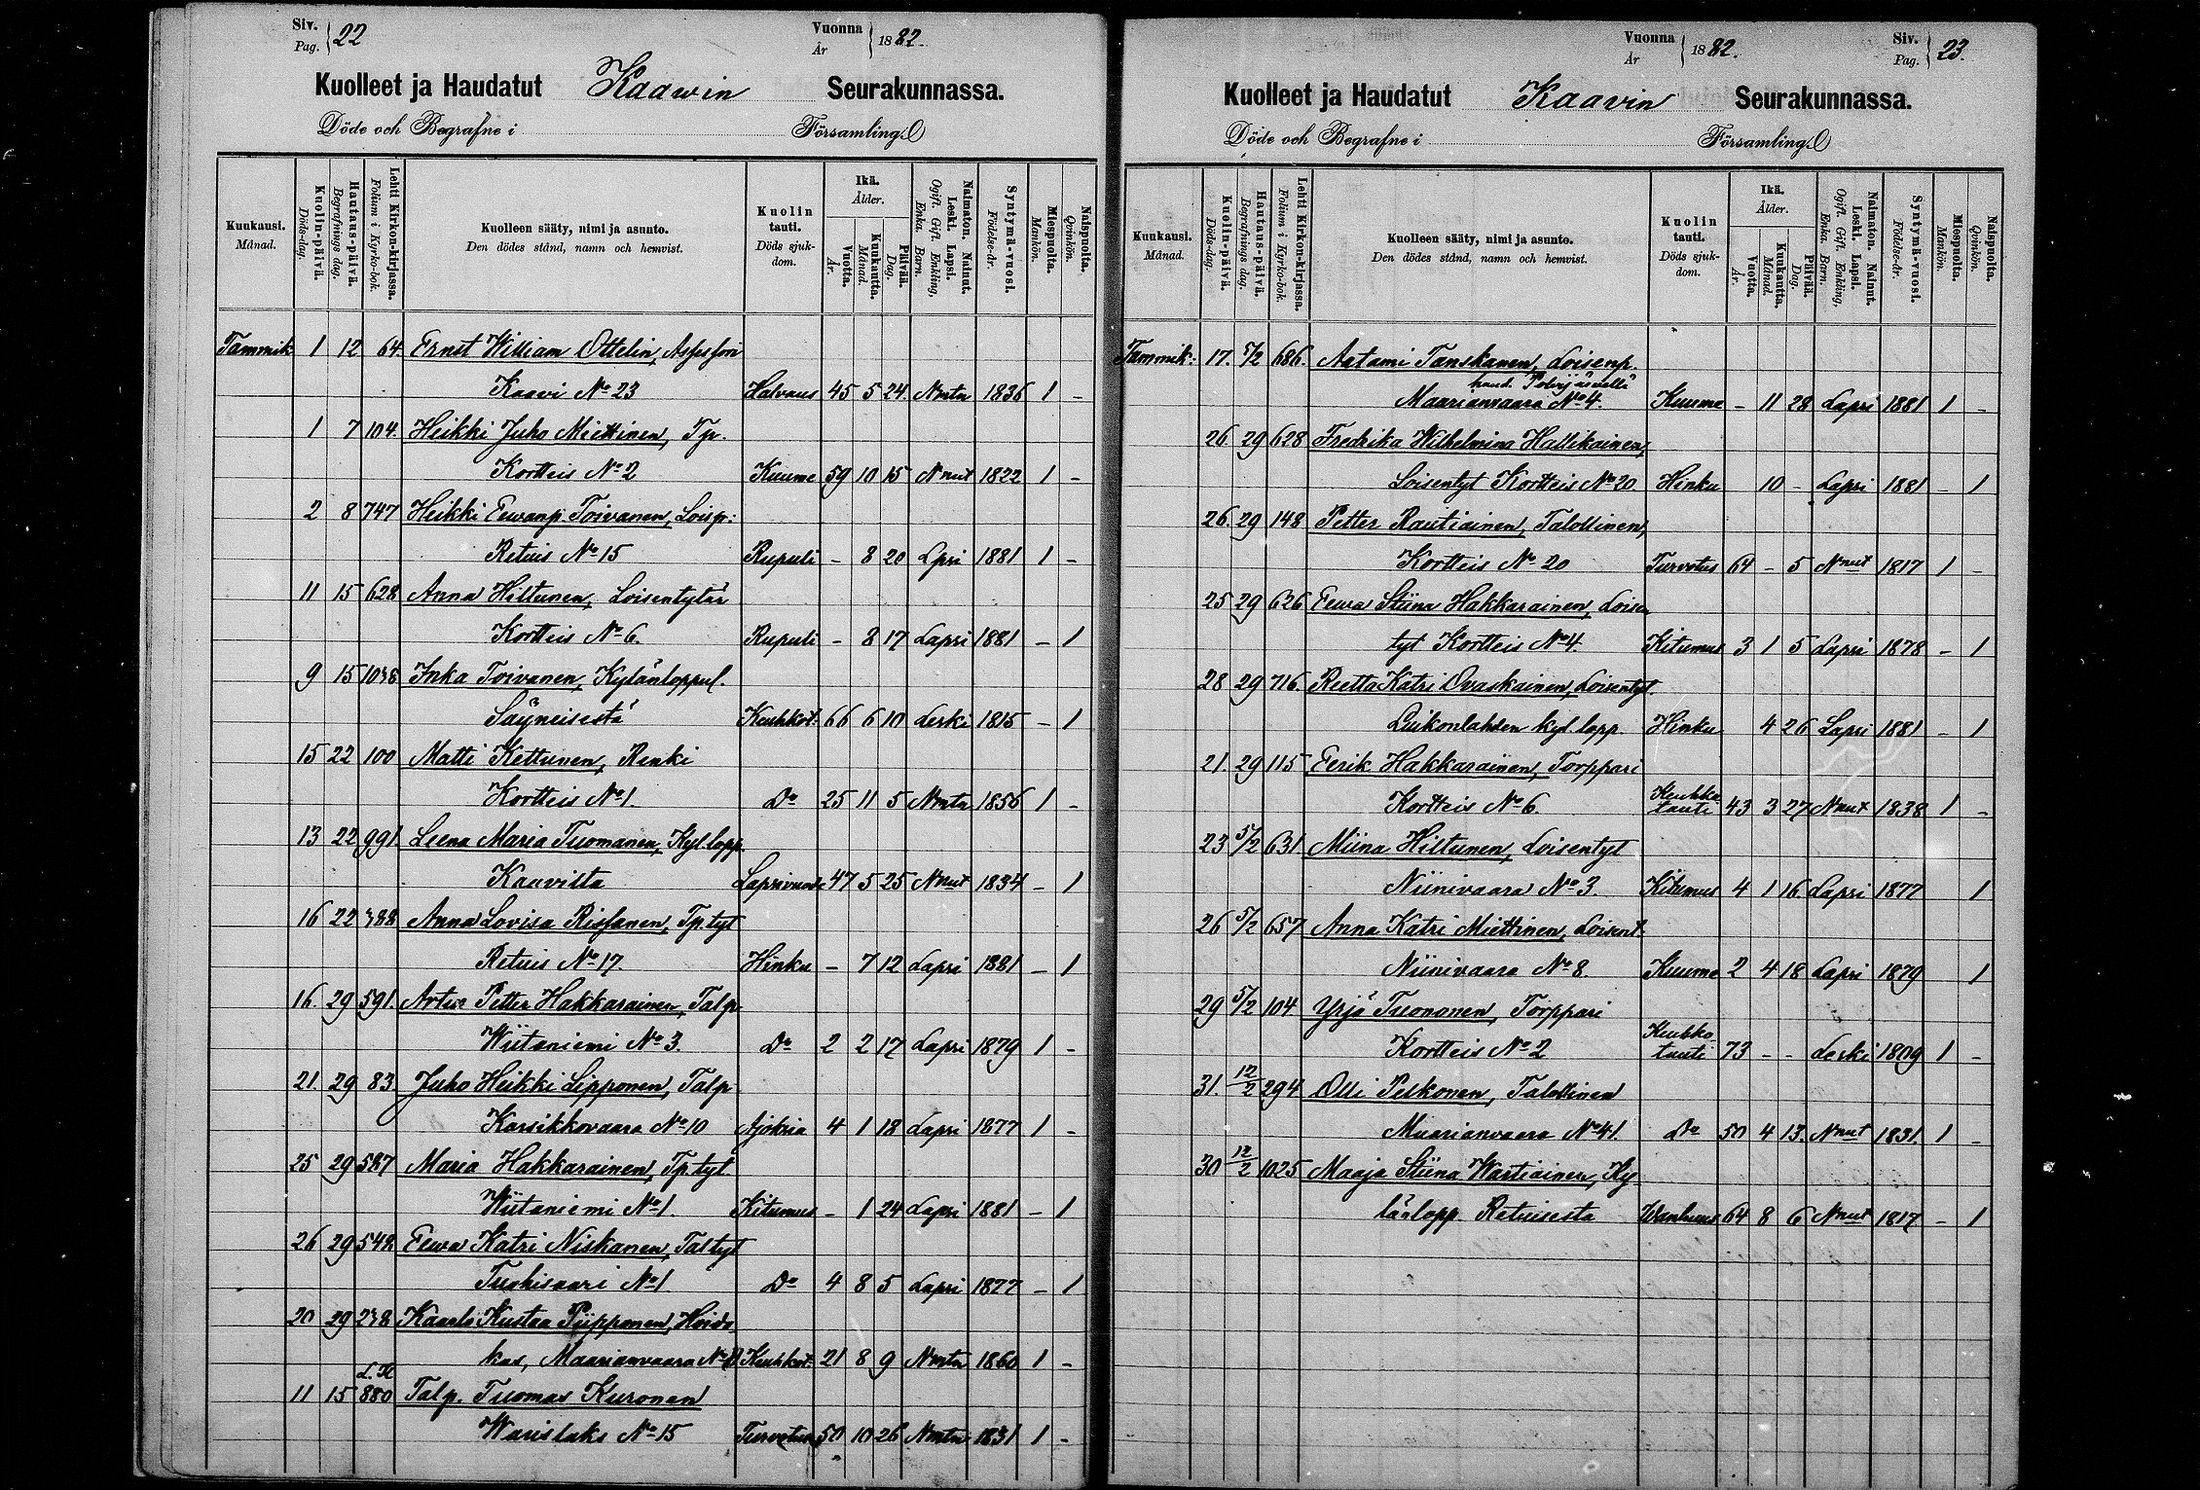 Siv. Pag. 22 Vuonna År 1882.
Kuolleet ja Haudatut Kaawin Seurakunnassa.
Döde och Begrafne i Församling.
Kuukausi. Månad. Kuolin-päivä. Döds-dag. Hautaus-päivä. Begrafnings dag. Lehti Kirkon-kirjassa. Folium i Kyrko-bok. Kuolleen sääty, nimi ja asunto. Den dödes stånd, namn och hemvist. Kuolin tauti. Döds sjukdom. Ikä. Ålder. Vuotta. År. Kuukautta. Månad. Päivää. Dag. Naimaton. Nainut. Leski. Lapsi. Ogift. Gift. Enkling, Enka. Barn. Syntymä-vuosi. Födelse-år. Miespuolta. Mankön. Naispuolta. Qvinkön.
Tammik 1 12 64 Ernst William Ottelin,
Kaavi No 23 Halvaus 45 5 24 Nmtn 1836 1 -
1 7 104 Heikki Juho Miettinen, Tp.
Kortteis No 2 Kuume 59 10 15 Nnut 1822 1 -
2 8 747 Heikki Eewanp. Toivanen, Loisp:
Retuis No 15 Rupuli - 8 20 Lpri 1881 1 -
11 15 628 Anna Hiltunen, Loisentytär
Kortteis No 6. Rupuli - 8 17 Lapri 1881 - 1
9 15 1038 Inka Toivanen, Kylänloppul.
Säyneisestä Keuhkot: 66 6 10 Leski 1815 - 1
15 22 100 Matti Kettunen, Renki
Kortteis No 1. Do 25 11 5 Nmtn 1856 1 -
13 22 991 Leena Maria Tuomanen, Kyl. lopp
Kaavilta Lapsivuode 47 5 25 Nnut 1834 - 1
16 22 388 Anna Lovisa Rissanen, Tp. tyt
Retuis No 17. Hinku - 7 12 Lapri 1881 - 1
16. 29 591. Petter Hakkarainen, Talp
Wiitaniemi No 3. Do 2 2 17 Lapri 1879 1 -
21. 29 83 Juho Heikki Lipponen, Talp
Karsikkovaara No 10 Ajoksia 4 1 18 Lapri 1877 1 -
25 29 587 Maria Hakkarainen, Tp. tyt
Wiitaniemi No 1. Kitumus - 1 24 Lapri 1881 - 1
26 29 548 Eewa Katri Niskanen, Taltyt
Tuohisaari No 1. Do 4 8 5 Lapri 1877 - 1
20 29 238 Kaarlo Kustaa Piipponen, Hoido
kas, Maarianvaara Keuhkot: 21 8 9 Nmtn 1860 1 -
L.K
11 15 880 Talp. Tuomas Kuronen
Warislaks No 15 Turvotus 50 10 26 Nmtn 1831 1 -
Vuonna År 1882. Siv. Pag. 23.
Kuolleet ja Haudatut Kaavin Seurakunnassa.
Döde och Begrafne i Församling.
Kuukausi. Månad. Kuolin-päivä. Döds-dag. Hautaus-päivä. Begrafnings dag. Lehti Kirkon-kirjassa. Folium i Kyrko-bok. Kuolleen sääty, nimi ja asunto. Den dödes stånd, namn och hemvist. Kuolin tauti. Döds sjukdom. Ikä. Ålder. Vuotta. År. Kuukautta. Månad. Päivää. Dag. Naimaton. Nainut. Leski. Lapsi. Ogift. Gift. Enkling, Enka. Barn. Syntymä-vuosi. Födelse-år. Miespuolta. Mankön. Naispuolta. Qvinkön.
Tammik: 17. 5/2 686. Aatami Tanskanen, Loisenp.
haud. Polvijärvellä
Maarianvaara No 4. Kuume - 11 28 Lapri 1881 1 -
26 29 628 Fredrika Wilhelmina Hallikainen,
Loisentyt Kortteis No 20 Hinku 10 - Lapri 1881 - 1
26. 29 148 Petter Rautiainen, Talollinen,
Kortteis No 20 Turvotus 64 - 5 Nnut 1817 1 -
25 29 626 Eewa Stiina Hakkarainen, Loisen
tyt Kortteis No 4. Kitumus 3 1 5 Lapri 1878 - 1
28 29 716. Reetta Katri Ovaskainen, Loisentyt.
Luikonlahden kyl. lopp. Hinku 4 26 Lapri 1881 - 1
21. 29 115 Eerik Hakkarainen, Torppari
Kortteis No 6. Keuhko tauti 43 3 27 Nnut 1838 1 -
23 5/2 631 Miina Hiltunen, Loisentyt
Niinivaara No 3. Kitumus 4 1 16. Lapri 1877 1
26 5/2 657 Anna Katri Miettinen, Loisent.
Niinivaara No 8. Kuume 2 4 18 Lapri 1879 1
29 5/2 104 Yrjö Tuononen, Torppari
Kortteis No 2 Keuhko tauti 73 - - Leski 1809 1 -
31. 12/2 294 Olli Pelkonen, Talollinen
Maarianvaara No 41. Do 50 4 13. Nnut 1831. 1 -
30 12/2 1025 Maaja Stiina Wartiainen, Ky
länlopp. Retuisesta Wanhuus 64 8 6 Nnut 1817 - 1